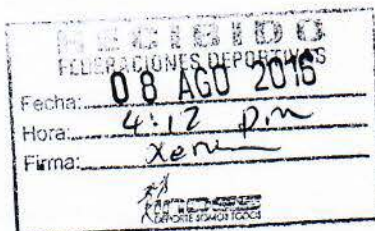 RECIBIDO
FEDERACIONES DEPORTIVAS
Fecha: 08 AGO 2016
Hora: 4:12 p.m
Firma:
DEPORTE SOMOS TODOS